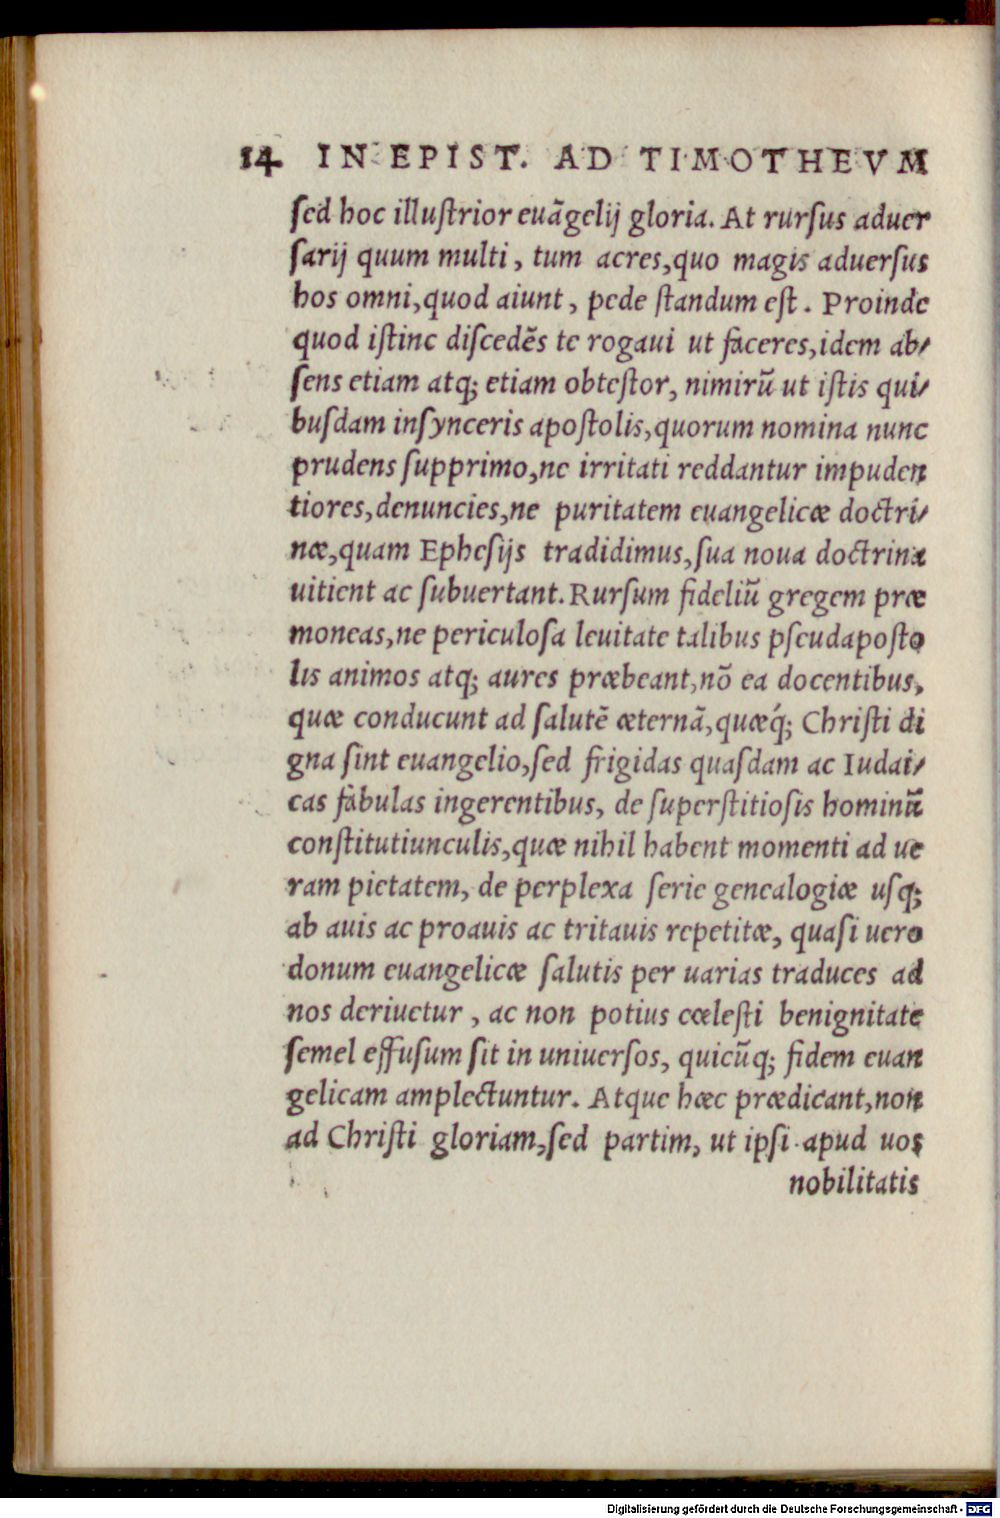 14 IN EPIST. AD TIMOTHEVM
ſed hoc illuſtrior euãgelij gloria. At rurſus aduer
ſarij quum multi, tum acres,quo magis aduerſus
hos omni,quod aiunt, pede ſtandum eſt. Proinde
quod iſtinc diſcedẽs te rogaui ut faceres,idem ab/
ſens etiam atq; etiam obteſtor, nimirũ ut iſtis qui/
buſdam inſynceris apoſtolis,quorum nomina nunc
prudens ſupprimo,ne irritati reddantur impuden
tiores,denuncies,ne puritatem euangelicæ doctri/
næ,quam Epheſijs tradidimus,ſua noua doctrina
uitient ac ſubuertant. Rurſum fideliũ gregem præ
moneas,ne periculoſa leuitate talibus pſeudapoſto
lis animos atq; aures præbeant,nõ ea docentibus,
quæ conducunt ad ſalutẽ æternã,quæq́; Chriſti di
gna ſint euangelio,ſed frigidas quaſdam ac Iudai/
cas fabulas ingerentibus, de ſuperſtitioſis hominũ
conſtitutiunculis,quæ nihil habent momenti ad ue
ram pietatem, de perplexa ſerie genealogiæ uſq;
ab auis ac proauis ac tritauis repetitæ, quaſi uero
donum euangelicæ ſalutis per uarias traduces ad
nos deriuetur, ac non potius cœleſti benignitate
ſemel effuſum ſit in uniuerſos, quicũq; fidem euan
gelicam amplectuntur. Atque hæc prædicant,non
ad Chriſti gloriam,ſed partim, ut ipſi apud uos
nobilitatis
Digitalisierung gefördert durch die Deutsche Forschungsgemeinschaft - DFG